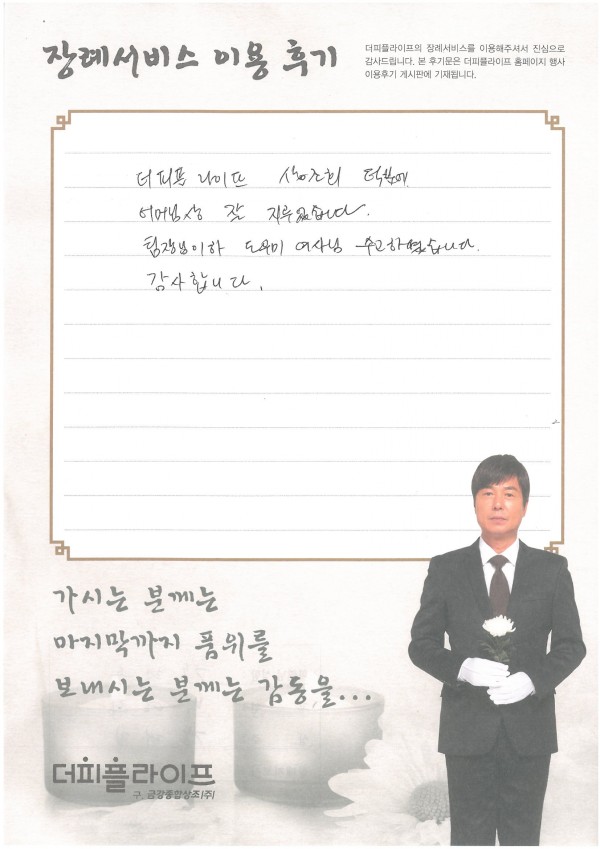 장례서비스 이용 후기
더피플라이프의 장례서비스를 이용해주셔서 진심으로
감사드립니다. 본 후기문은 더피플라이프 홈페이지 행사
이용후기 게시판에 기재됩니다.
더피플 라이프 상조회 덕분에
어머님상 잘 치루었습니다.
팀장님이하 도우미 여사님 수고하셨습니다.
감사합니다.
가시는 분께는
마지막까지 품위를
보내시는 분께는 감동을...
더피플라이프
구. 금강종합상조(주)